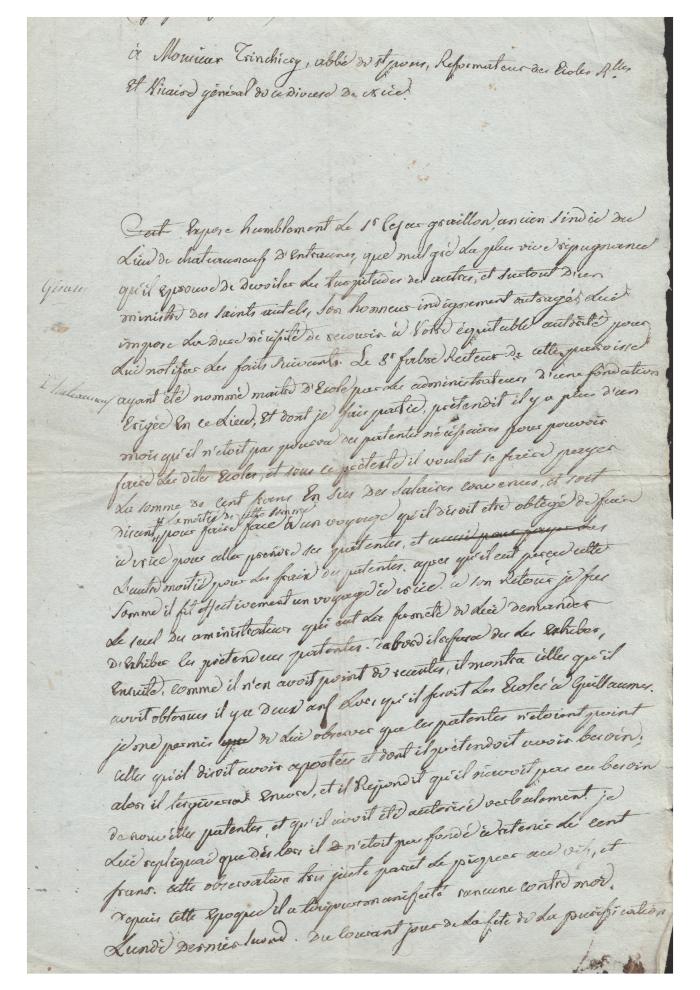 à Monsieur Trinchiery, abbé de St pons, Reformateur des Ecoles Rlles
Et Vicaire général de ce diocese de nice.
Expose humblement Le Sr Cesar graillon, ancien sindic du
Lieu de chateauneuf D'Entraunes, que malgré La plus vive repugnance
qu'il eprouve de Devoiler Les turpitudes des autres, et surtout D'un
ministre des saints autels, son honneur indignement outragé, Lui
impose La dure nécessité de recourir à Votre équitable autorité pour
Lui notifier Les faits suivants. Le Sr fabre Recteur de cette paroisse
ayant été nommé maitre D'Ecole par Les administrateurs d'une fondation
Erigée En ce Lieu, Et dont je fais partie, prétendit il y a plus d'un
mois qu'il n'etoit pas pourvu des patentes nécessaires pour pouvoir
faire Les dites Ecoles, et sous ce prétexte il voulut se faire payer
La somme de cent francs En sus des salaires convenus, et soit
La moitié de cette somme
disant pour faire face à un voyage qu'il disoit etre obligé de faire
à nice pour aller prendre ses patentes, et
L'autre moitié pour Les fraix des patentes. apres qu'il eut perçu cette
somme il fit effectivement un voyage à nice. a son retour je fus
Le seul des administrateurs qui eut La fermeté de Lui demander
D'Exhiber les prétendues patentes. D'abord il refusa de Les Exhiber,
Ensuite, comme il n'en avoit point de recentes, il montra celles qu'il
avoit obtenues il y a deux ans Lors qu'il faisoit Les Ecoles à Guillaumes.
je me permis de Lui observer que ces patentes n'etoient point
celles qu'il disoit avoir aportées et dont il prétendoit avoir besoin;
alors il tergiversa Encore, et il Repondit qu'il n'avoit pas eu besoin
de nouvelles patentes, et qu'il avoit été autorisé verbalement. je
Lui repliquai que dès lors il n'etoit pas fondé à retenir Les cent
francs. cette observation tres juste parut Le piquer au vif, et
Depuis cette Epoque il a toujours manifesté rancune contre moi.
Lundi Dernier Du Courant jour de La fête de La purification